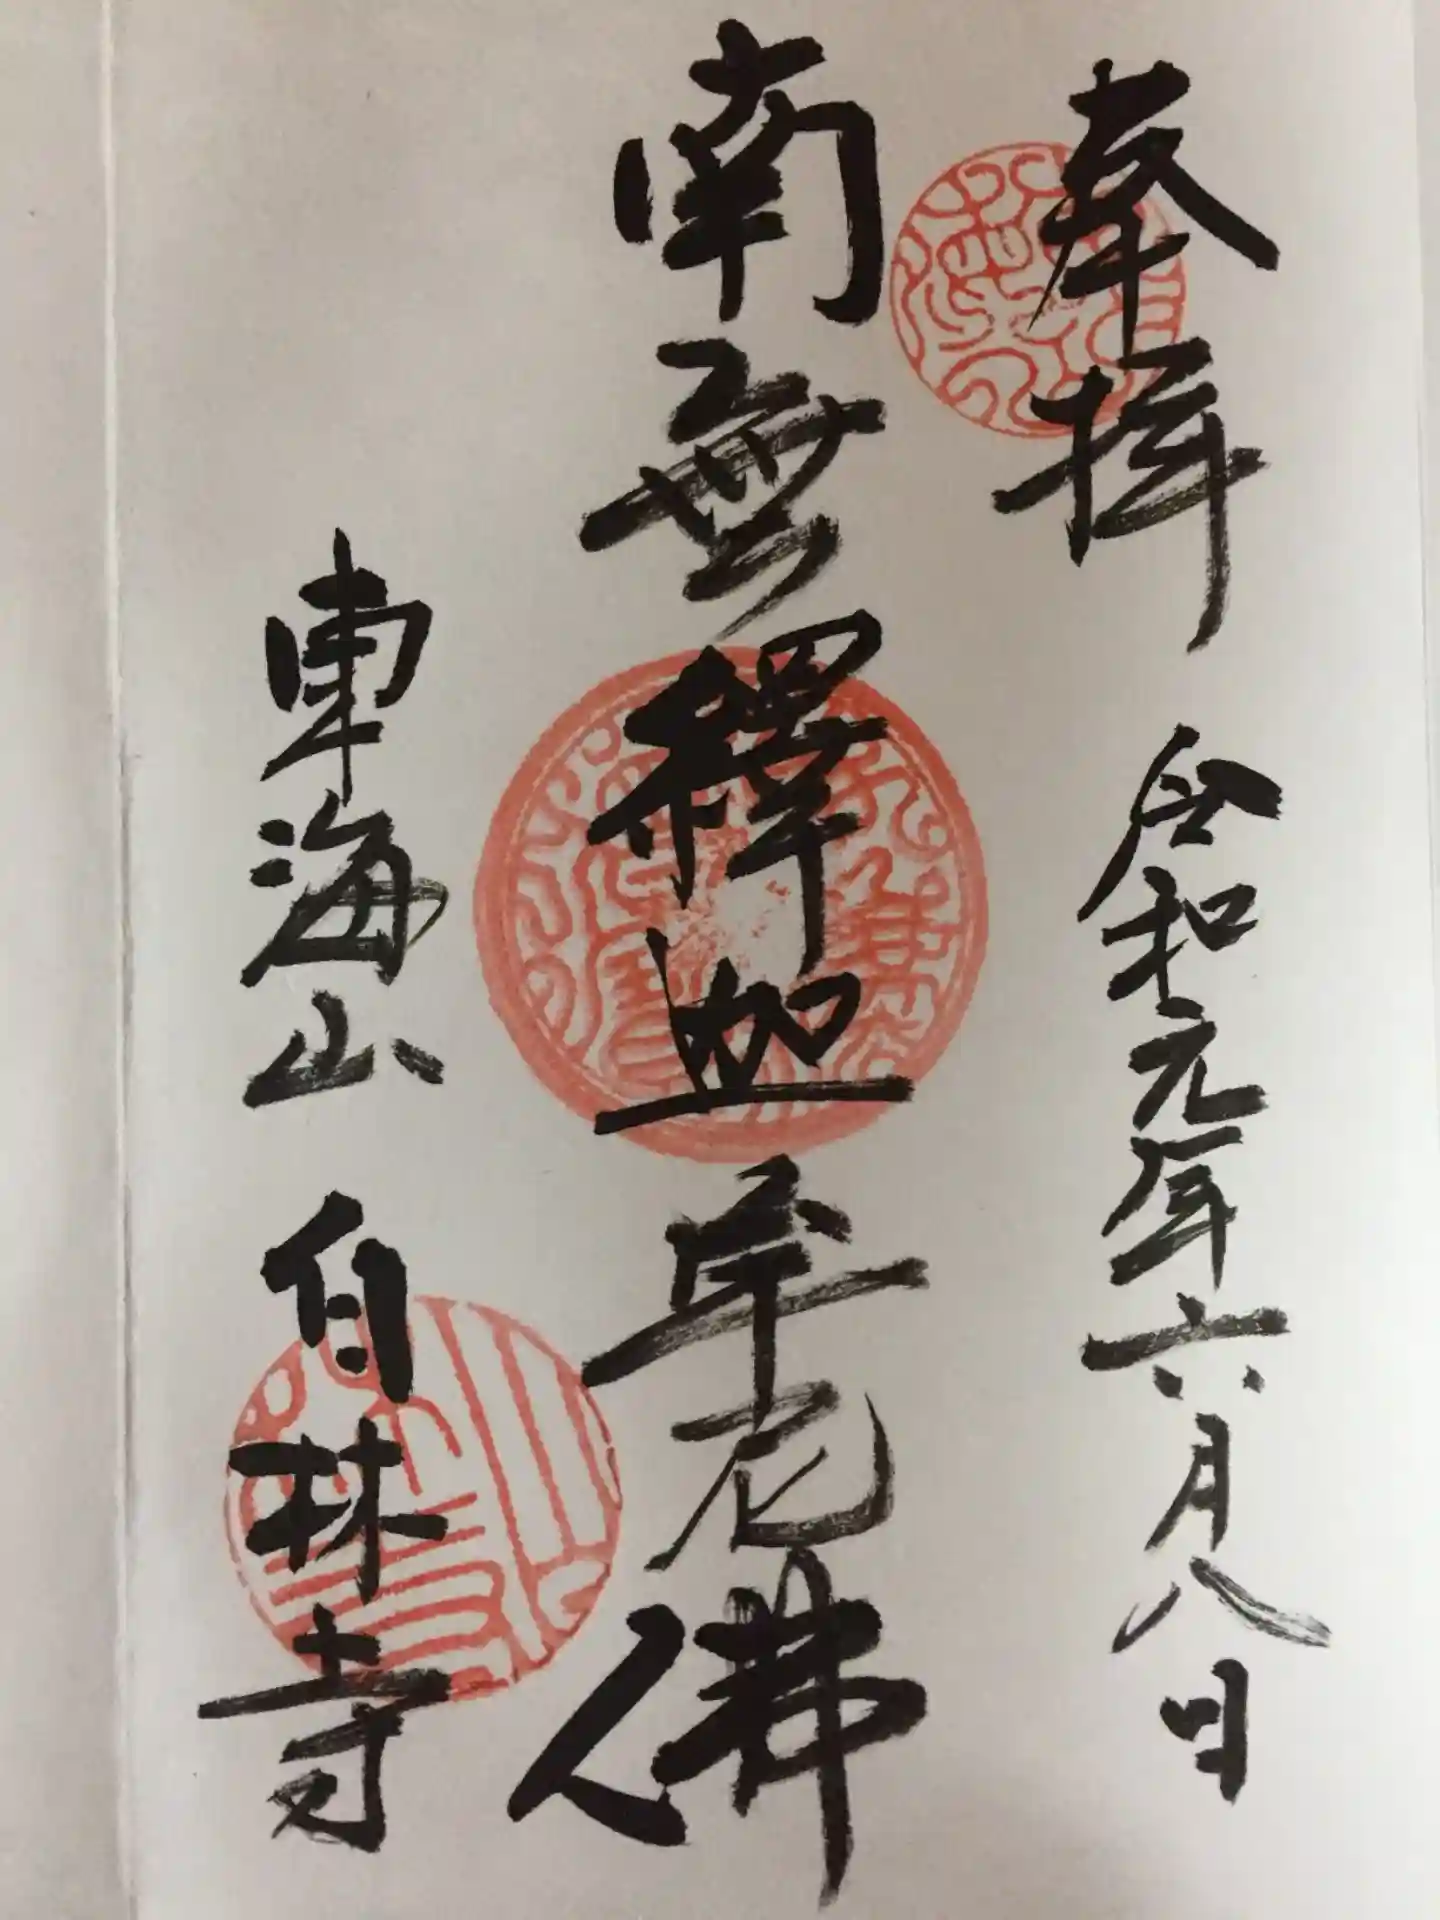 奉拝 令和元年六月八日
南無釋迦牟尼佛
東海山 白林寺